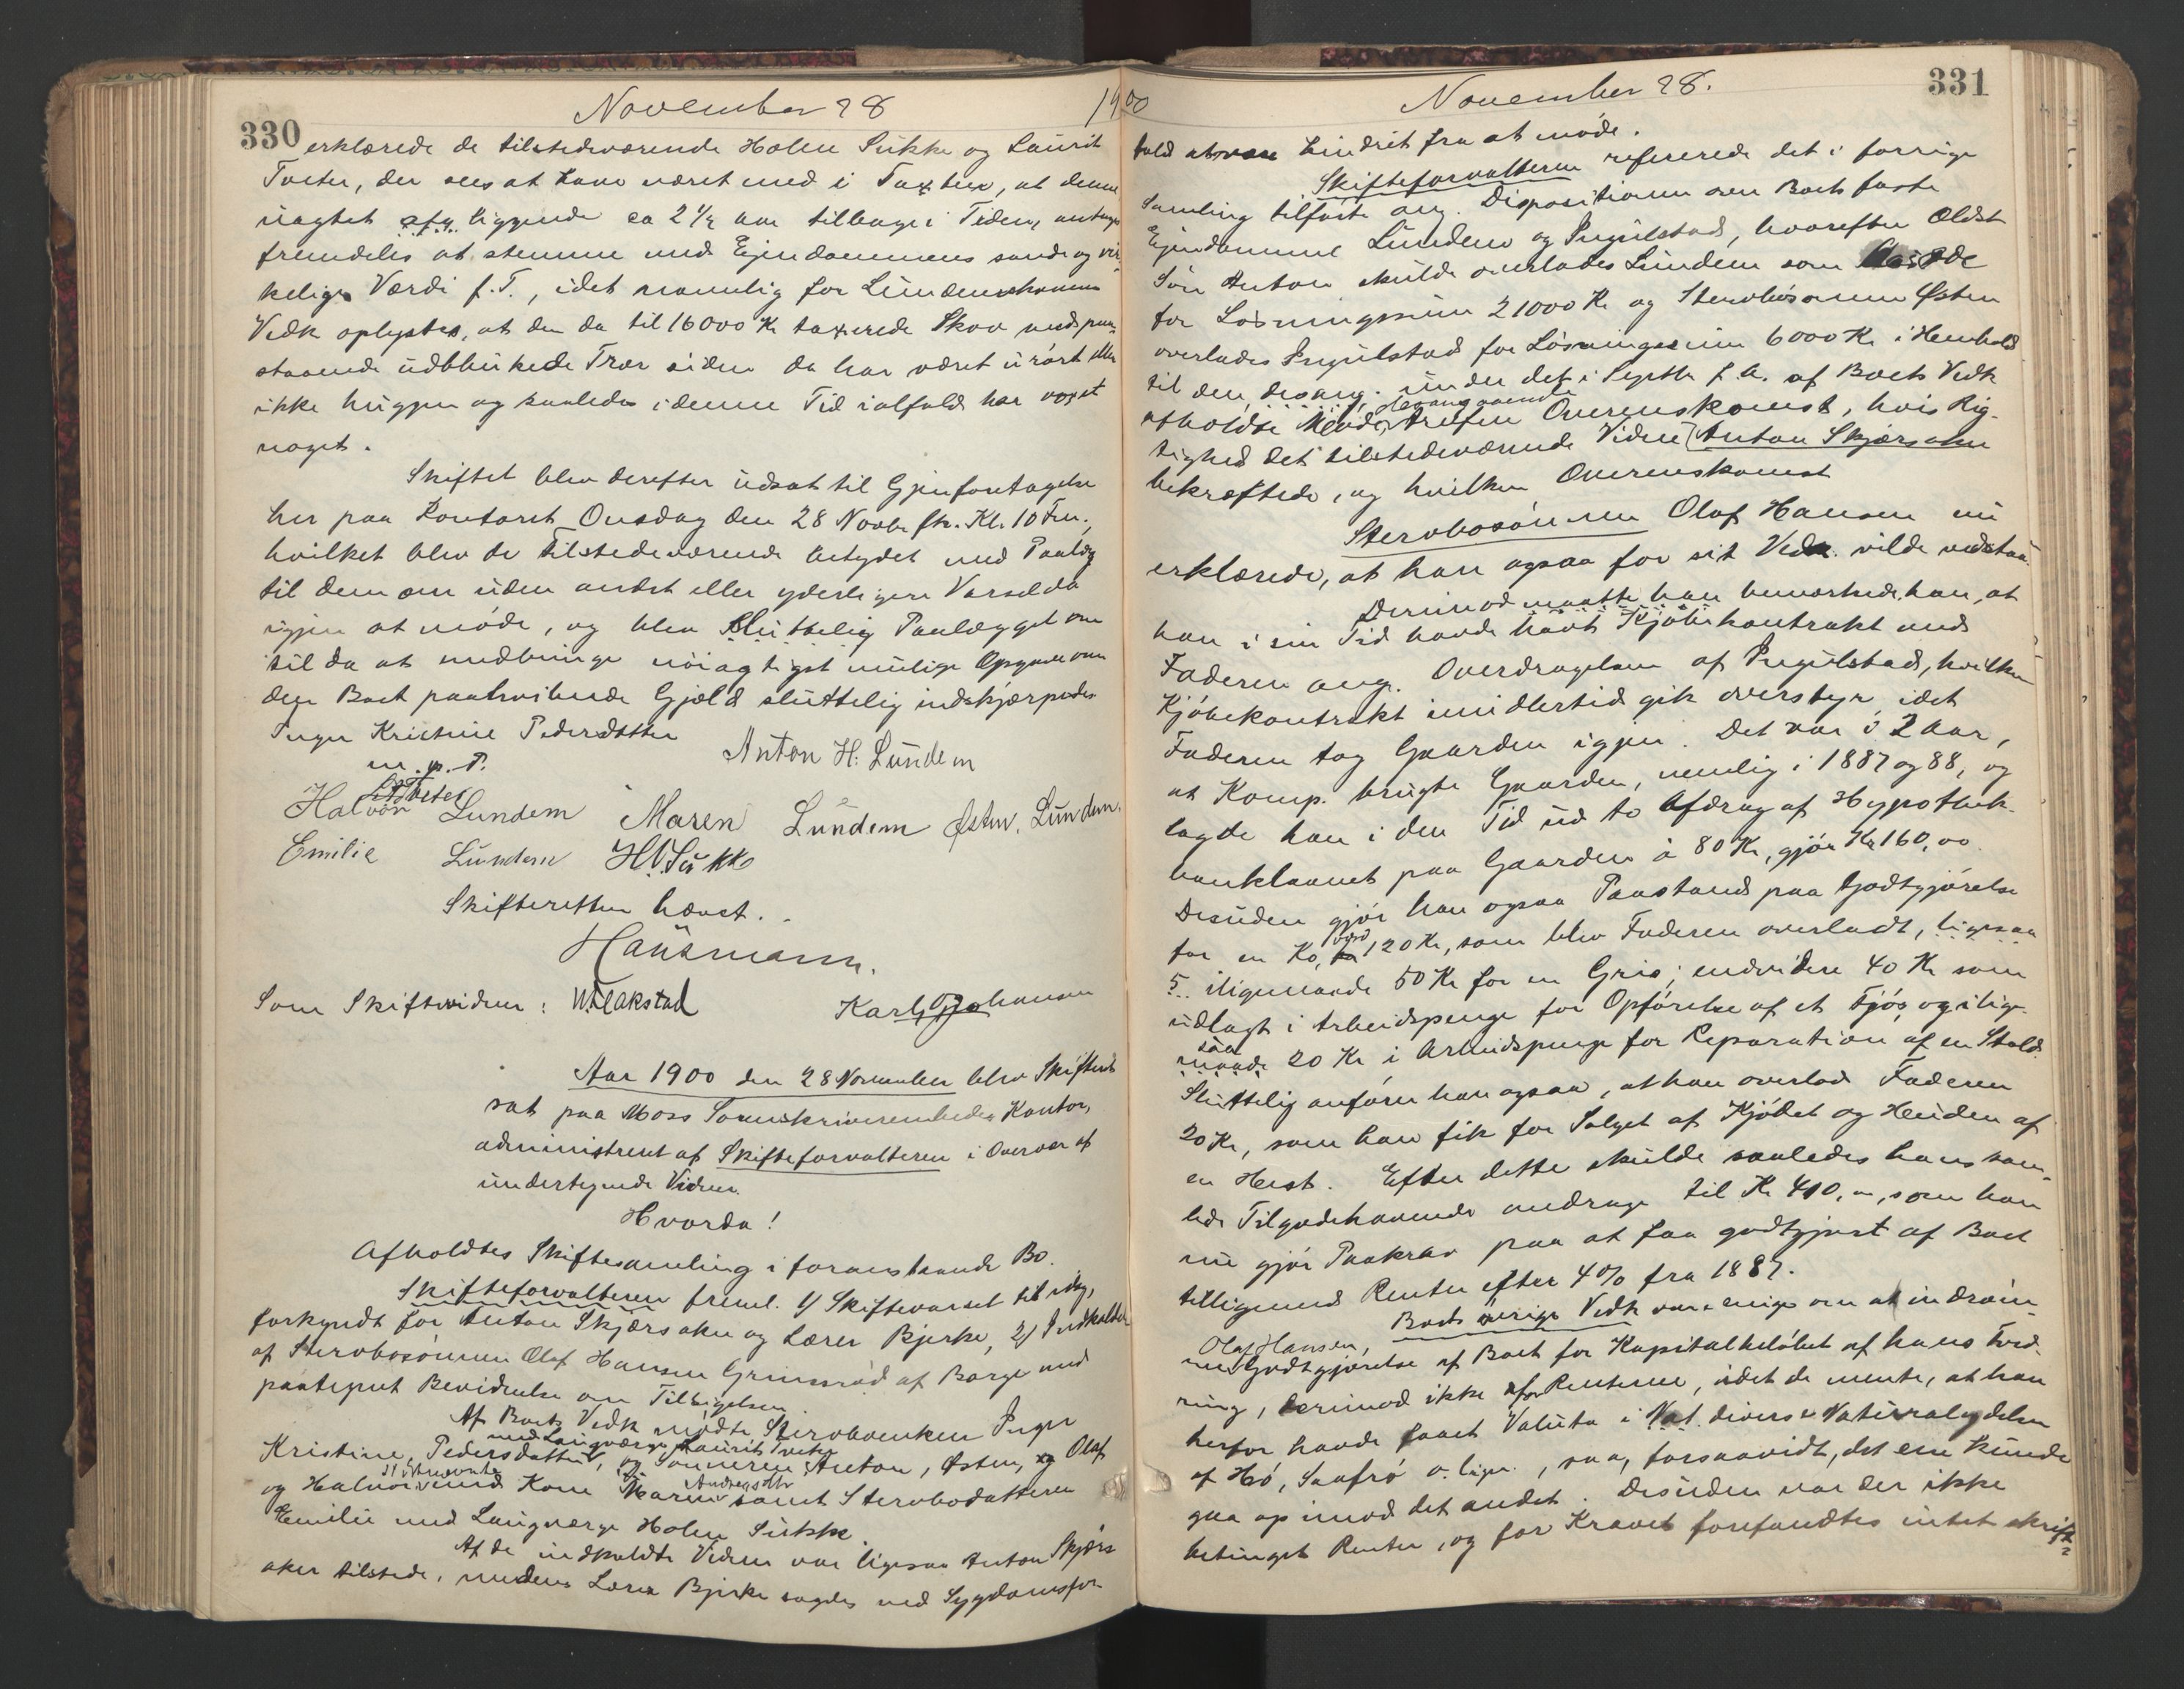 330
November 28
1900
erklærede de tilstedeværende Holm Sukke og Laurit
Tveter, der sees at have været med i Taxten, at denne
uagtet liggende ca 2½ aar tilbage i Tiden, antages
fremdeles at stemme med Ejendommens sande og vir-
kelige Værdi f. T., idet navnlig for Lundems
Vedk oplystes, at den da til 16000 Kr taxerede Skov med paa-
staaende udblinkede Trær siden da har været urørt eller
ikke huggen og saaledes i denne Tid ialfald har voxet
noget.
Skiftet blev derefter udsat til Gjenforetagelse
her paa Kontoret Onsdag den 28 Novbr Kl. 10 Fm.,
hvilket blev de Tilstedeværende betydet med Paalæg
til dem om uden andet eller yderligere Varsel da
igjen at møde, og blev sluttelig Paalægget om
til da at medbringe nøiagtigst mulige Opgave over
den Boet paahvilende Gjæld sluttelig indskjærpedes
Inger Kristine Pedersdatter
m. p. P.
Anton H. Lundem
LTveter
Halvor Lundem Maren Lundem Østen. Lundem.
Emilie Lundem H. Sukke
Skifteretten hævet.
Hausmann.
Som Skiftevidner: Wleakstad Karl Johansen
Aar 1900 den 28 November blev Skifteret
sat paa Moss Sorenskriverembedes Kontor,
administreret af Skifteforvalteren i Overvær af
undertegnede Vidner.
Hvorda!
Afholdtes Skiftesamling i foranstaaende Bo.
Skifteforvalteren freml. 1/ Skiftevarsel til idag,
forkyndt for Anton Skjærsaker og Lærer Bjerke, 2/ Indkaldelse
af Sterbosønnen Olaf Hansen Grimsrød af Borge med
paategnet Bevidnelse om Tilsigelsen.
Af Boets Vedk mødte Sterboenken Inger
med Laugværge Laurit Tveter
Kristine Pedersdatter, og Sønnerne Anton, Østen, og Olaf
Andreasdtr
og Halvor med Kone Maren samt Sterbodatteren
Emilie med Laugværge Holm Sukke.
Af de indkaldte Vidner var ligesaa Anton Skjærs-
aker tilstede, medens Lærer Bjerke sagdes ved Sygdomsfor-
November 28.
331
fald at være hindret fra at møde.
Skifteforvalteren refererede det i forrige
Samling tilførte ang. Dispositionen over Boets faste
Ejendomme Lundem og Ingulstad, hvorefter Ældste
Søn Anton skulde overlades Lundem som
for Løsningssum 21000 Kr og Sterbosønnen Østen
overlades Ingulstad for Løsningssum 6000 Kr i Henhold
til den desang. under det i Septbr f. A. af Boets Vedk
desangaaende
afholdte Møde trufne Overenskomst, hvis Rig-
tighed det tilstedeværende Vidne Anton Skjærsaker
bekræftede, og hvilken Overenskomst
Sterbosønnen Olaf Hansen nu
erklærede, at han ogsaa for sit Vedk. vilde vedstaa.
Derimod maatte han bemærkede han, at
han i sin Tid havde havt Kjøbekontrakt med
Faderen ang. Overdragelsen af Ingulstad, hvilken
Kjøbekontrakt imidlertid gik overstyr, idet
Faderen tog Gaarden igjen. Det var i 2 Aar,
at Komp. brugte Gaarden, nemlig i 1887 og 88, og
lagde han i den Tid ud to Afdrag af Hypothek-
banklaanet paa Gaarden à 80 Kr, gjør Kr 160,00
Desuden gjør han ogsaa Paastand paa Godtgjørelse
værd
for en Ko, 120 Kr, som blev Faderen overladt, ligesaa
iligemaade 50 Kr for en Gris; endvidere 40 Kr som
udlagt i Arbeidspenge for Opførelse af et Fjøs og ilige-
saa
maade 20 Kr i Arbeidspenge for Reparation af en Stald.
Sluttelig anfører han ogsaa, at han overlod Faderen
20 Kr, som han fik for Salget af Kjødet og Huden af
en Hest. Efter dette skulde saaledes hans sam-
lede Tilgodehavende andrage til Kr 410,00, som han
nu gjør Paakrav paa at faa godtgjort af Boet
tilligemed Renter efter 4% fra 1887.
Boets øvrige Vedk var enige om at indrøm-
Olaf Hansen,
me Godtgjørelse af Boet for Kapitalbeløbet af hans Ford-
ring, derimod ikke af Renterne, idet de mente, at han
herfor havde faaet Valuta i diverse Naturalydelser
af Hø, Saafrø o. lign., saa, forsaavidt, det ene kunde
gaa op imod det andet. Desuden var der ikke
betinget Renter, og for Kravet forefandtes intet skrift-